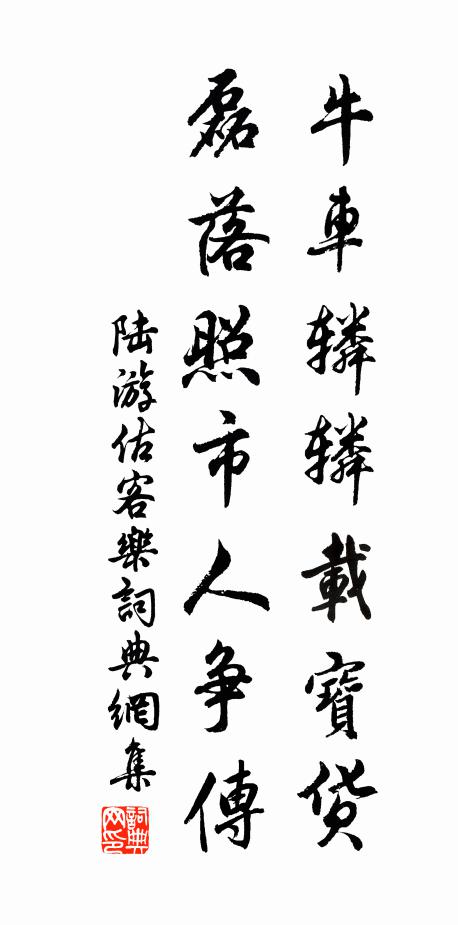 牛車轔轔載寶貨
磊落照市人爭傳
陸游估客樂詞典網集
詞典网印